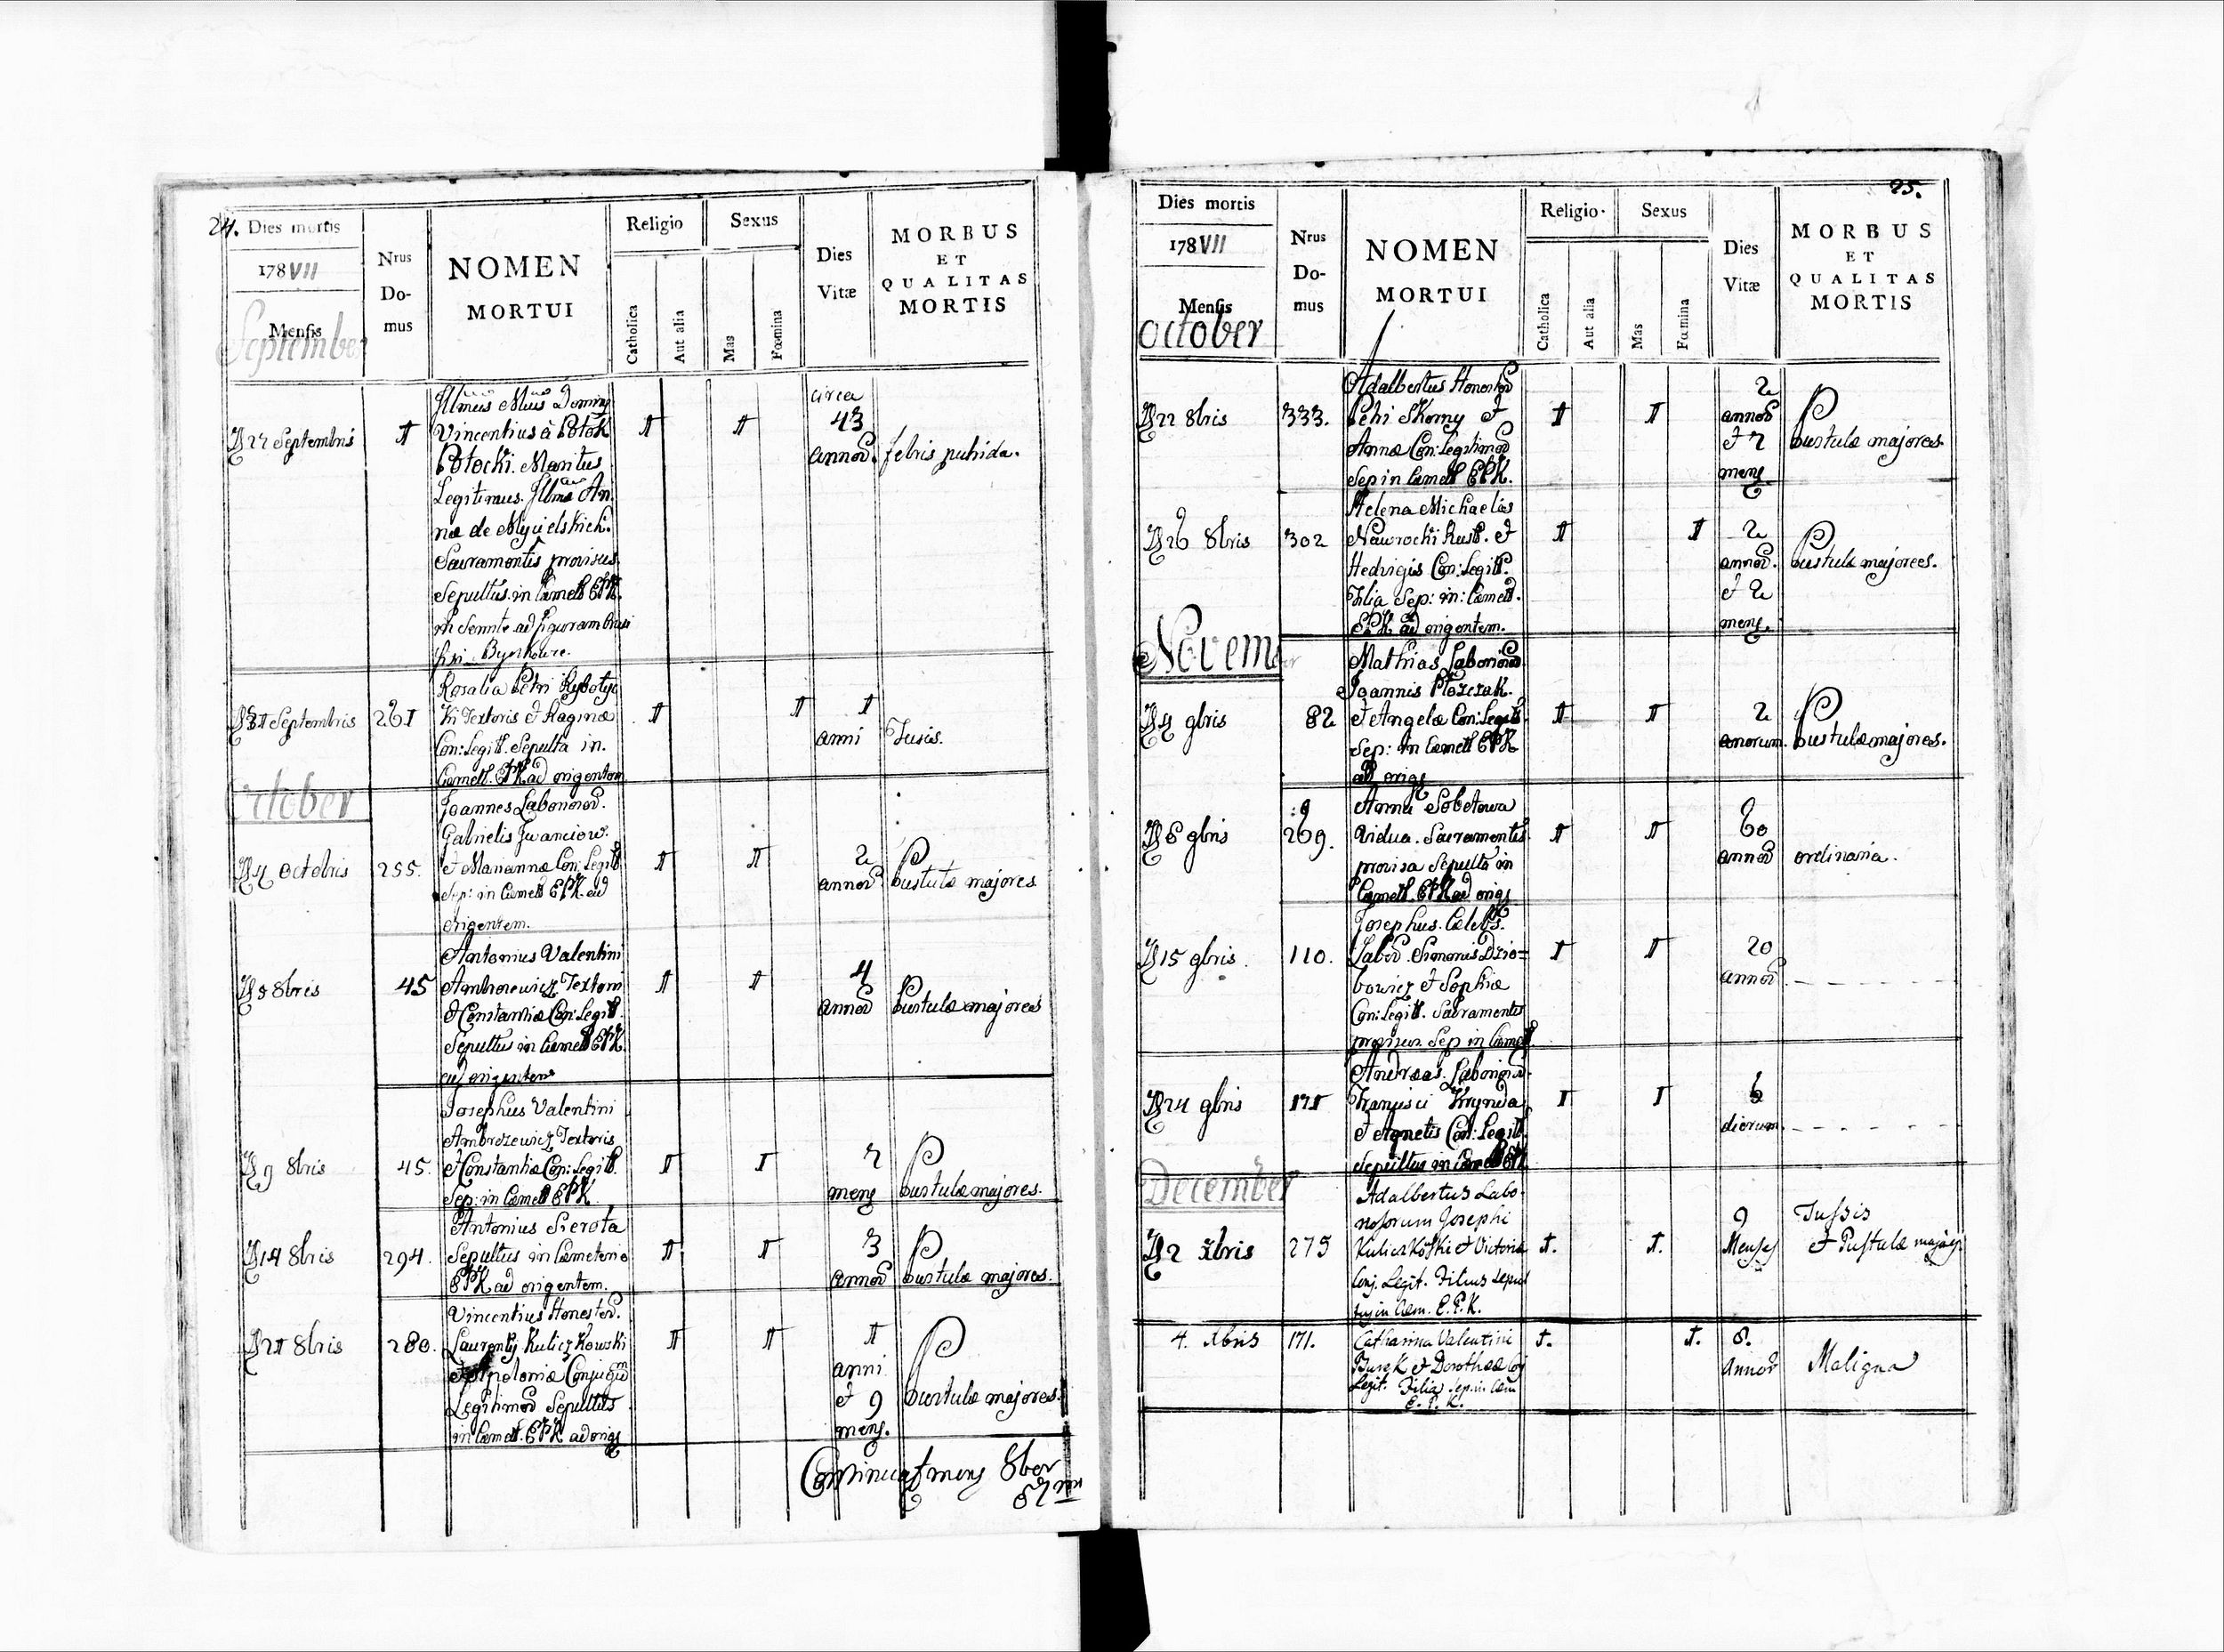 24. Dies mortis
178VII
Mensis
September
Nrus
Do-
mus
NOMEN
MORTUI
Religio
Catholica
Aut alia
Sexus
Mas
Fœmina
Dies
Vitæ
MORBUS
ET
QUALITAS
MORTIS
circa
43
annor.
Vincentius à Potok
Potocki. Maritus
Legitimus. Illmæ An
næ de Mycielskich.
Sacramentis provisus
Sepultus in Cæmet EPK.
febris putrida.
Septembris
261
Rosalia Petri
Textoris et Raginæ
Con: Legitt. Sepulta in
Cæmett. EPK ad origentem
1
anni
Tusis.
October
Octobris
255.
Joannes Laborior.
Gabrielis Iwanciow.
et Mariannæ Con: Legitt
Sep: in Cæmett EPK. ad
origentem.
2
annor
Pustulæ majores
8bris
45
Antonius Valentini
Ambrozewicz Textoris
et Constantiæ Con: Legitt.
Sepultus in Cæmett EPK.
ad origentem
4
annor
Pustulæ majores
9 8bris
45.
Josephus Valentini
Ambrozewicz Textoris
et Constantiæ Con: Legitt.
Sep: in Cæmett EPK
mens
Pustulæ majores.
14 8bris
294.
Antonius Sierota
Sepultus in Cæmeterio
EPK ad origentem.
3
annor
Pustulæ majores.
21 8bris
280.
Vincentius Honestor.
Laurentij Kuliczkowski
et Apoloniæ Conjugum
Legitimor Sepultus
in Cæmett. EPK ad orig
1
anni
et 9
mens.
Pustulæ majores.
Continuat mens 8ber
25.
Dies mortis
178VII
Mensis
October
Nrus
Do-
mus
NOMEN
MORTUI
Religio.
Catholica
Aut alia
Sexus
Mas
Fœmina
Dies
Vitæ
MORBUS
ET
QUALITAS
MORTIS
22 8bris
333.
Adalbertus Honestor
Petri Skorny et
Annæ Con: Legitimor
Sep in Cæmett EPK.
2
annor
mens
Pustulæ majores
26 8bris
302
Helena Michaelis
Nawrocki Rust. et
Hedvigis Con: Legitt.
Filia Sep: in: Cæmett.
EPK ad origentem.
2
annor.
et 2
mens.
Pustulæ majores.
November
4 9bris
82
Mathias Laborior
Joannis
et Angelæ Con: Legitt
Sep: in Cæmett EPK
ad orig
2
anorum.
Pustulæ majores.
9bris
269.
Anna Sobotowa
Vidua. Sacramentis
provisa Sepulta in
Cæmett. EPK ad orig
60
annor
ordinaria.
15 9bris.
110.
Josephus. Cælebs.
Labor. Simonis Dzio=
bowicz et Sophiæ
Con: Legitt. Sacramentis
provisus. Sep in Cæmett
20
annor
24 9bris
171
Andreas. Laborior.
Francisci Krynda
et Agnetis Con: Legitt.
Sepultus in Cæmett EPK
6
dierum
December
2 Xbris
275
Adalbertus Labo-
riosorum Josephi
Kuliczkoski et Victoria
Conj. Legit. Filius sepul
tus in Cæm. E.P.K.
9
Menses
Tussis
et Pustulæ majores
4. Xbris
171.
Catharina Valentini
Burek et Dorothææ Coj
Legit. Filia Sep. in Cæm
E. P. K.
8.
Annor
Maligna